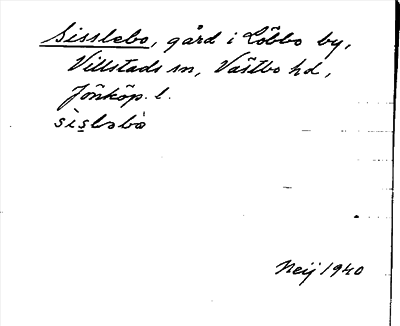 Sisslebo, gård i Löbbo by,
Villstads sn, Västbo hd,
Jönköp. l.
Neij 1940